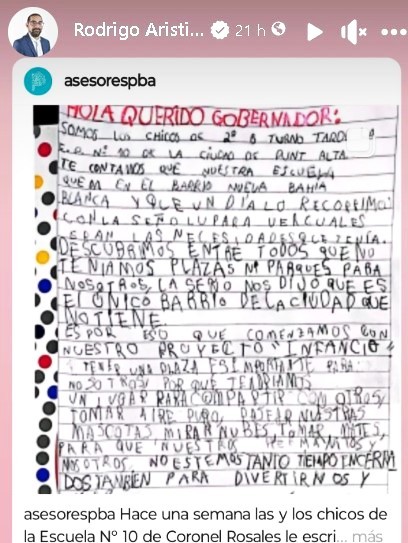 Rodrigo Aristi... 21 h
asesorespba
HOLA QUERIDO GOBERNADOR:
SOMOS LOS CHICOS DE 2º B TURNO TARD
E.P. Nº 10 DE LA CIUDAD DE PUNT ALTA
TE CONTAMOS QUE NUESTRA ESCUELA
QUEDA EN EL BARRIO NUEVA BAHIA
BLANCA Y QUE UN DIA LO RECORRIMOS
CON LA SEÑO LU PARA VER CUALES
ERAN LAS NECESIDADES QUE TENIA.
DESCUBRIMOS ENTRE TODOS QUE NO
TENIAMOS PLAZAS NI PARQUES PARA
NOSOTROS, LA SEÑO NOS DIJO QUE ES
EL UNICO BARRIO DE LA CIUDAD QUE
NO TIENE.
ES POR ESO QUE COMENZAMOS CON
NUESTRO PROYECTO "INFANCIO"
TENER UNA PLAZA ES IMPORTANTE PARA
NOSOTROS POR QUE TENDRIAMOS
UN LUGAR PARA COMPARTIR CON OTROS,
TOMAR AIRE PURO, PASEAR NUESTRAS
MASCOTAS MIRAR NUBES TOMAR MATES,
PARA QUE NUESTROS HERMANITOS Y
NOSOTROS, NO ESTEMOS TANTO TIEMPO ENCERRA
DOS TAMBIEN PARA DIVERTIRNOS Y
asesorespba Hace una semana las y los chicos de
la Escuela N° 10 de Coronel Rosales le escri... más